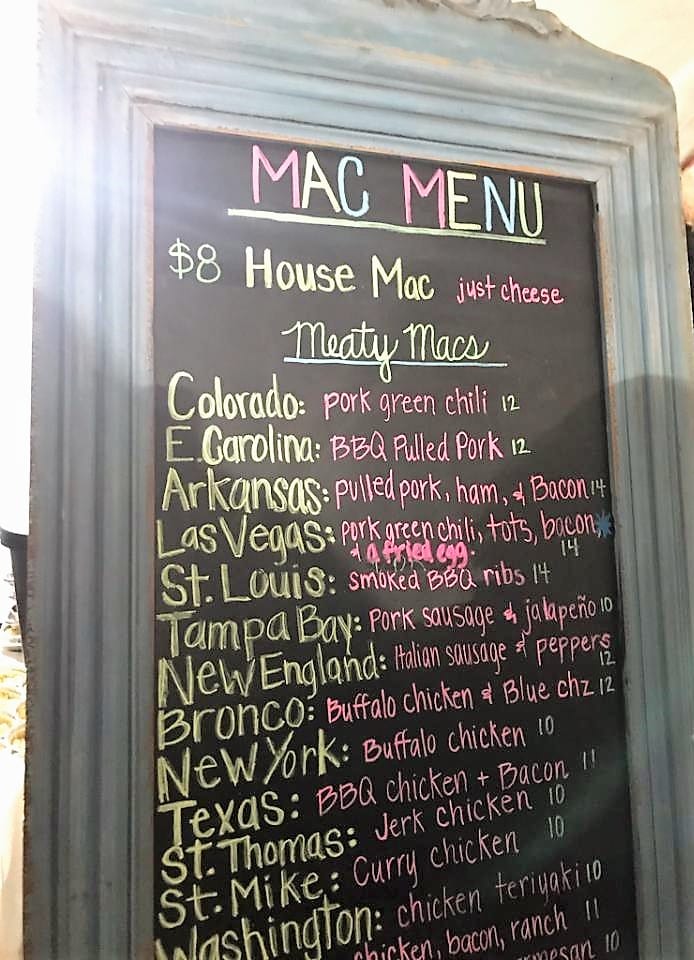 MAC MENU
$8 House Mac just cheese
Meaty Macs
Colorado: pork green chili 12
E. Carolina: BBQ Pulled Pork 12
Arkansas: pulled pork, ham, & Bacon 14
Las Vegas: pork green chili, tots, bacon
& a fried egg. 14
St. Louis: smoked BBQ ribs 14
Tampa Bay: Pork sausage & jalapeño 10
New England: Italian sausage & peppers
12
Bronco: Buffalo chicken & Blue chz 12
New York: Buffalo chicken 10
Texas: BBQ chicken + Bacon 11
St. Thomas: Jerk chicken 10
St. Mike: Curry chicken 10
Washington: chicken teriyaki 10
chicken, bacon, ranch 11
10